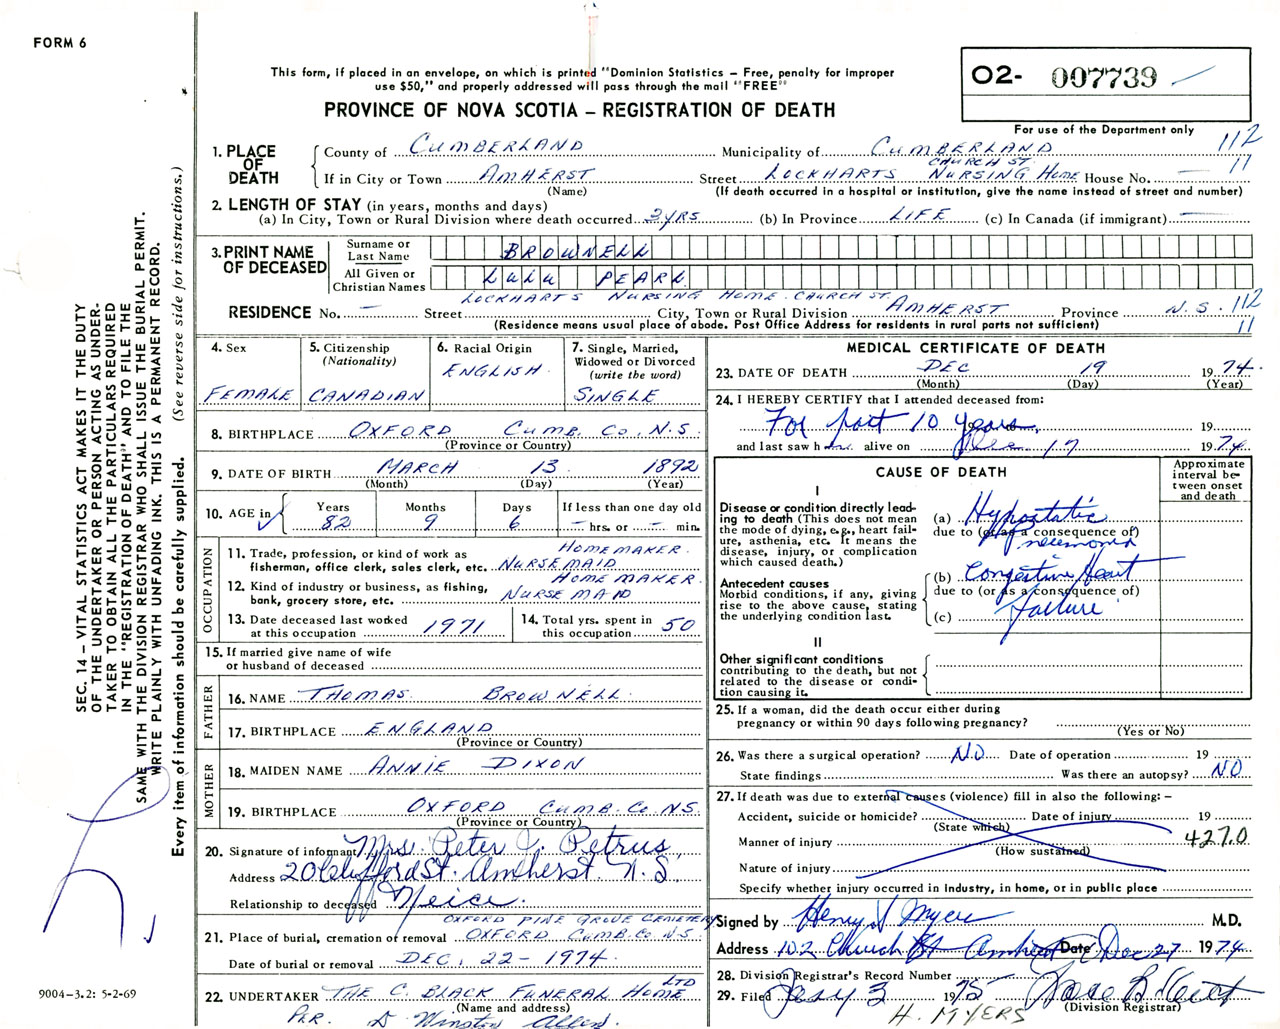 FORM 6
This form, if placed in an envelope, on which is printed "Dominion Statistics – Free, penalty for improper
use $50," and properly addressed will pass through the mail "FREE"
PROVINCE OF NOVA SCOTIA – REGISTRATION OF DEATH
O2- 007739
For use of the Department only
112
11
1. PLACE OF DEATH
County of CUMBERLAND Municipality of CUMBERLAND
CHURCH ST.
If in City or Town AMHERST Street LOCKHARTS NURSING HOME House No. —
(Name) (If death occurred in a hospital or institution, give the name instead of street and number)
2. LENGTH OF STAY (in years, months and days)
(a) In City, Town or Rural Division where death occurred 3 YRS (b) In Province LIFE (c) In Canada (if immigrant) —
3. PRINT NAME OF DECEASED
Surname or Last Name BROWNELL
All Given or Christian Names LULU PEARL
LOCKHARTS NURSING HOME CHURCH ST.
RESIDENCE No. — Street City, Town or Rural Division AMHERST Province N.S. 112
(Residence means usual place of abode. Post Office Address for residents in rural parts not sufficient) 11
4. Sex FEMALE
5. Citizenship (Nationality) CANADIAN
6. Racial Origin ENGLISH
7. Single, Married, Widowed or Divorced (write the word) SINGLE
8. BIRTHPLACE OXFORD CUMB. CO. N.S.
(Province or Country)
9. DATE OF BIRTH MARCH 13 1892
(Month) (Day) (Year)
10. AGE in Years 82 Months 9 Days 6 If less than one day old — hrs. or — min.
OCCUPATION
HOMEMAKER.
11. Trade, profession, or kind of work as
fisherman, office clerk, sales clerk, etc. NURSEMAID
HOMEMAKER.
12. Kind of industry or business, as fishing,
bank, grocery store, etc. NURSEMAID
13. Date deceased last worked at this occupation 1971
14. Total yrs. spent in this occupation 50
15. If married give name of wife
or husband of deceased
FATHER
16. NAME THOMAS BROWNELL
17. BIRTHPLACE ENGLAND
(Province or Country)
MOTHER
18. MAIDEN NAME ANNIE DIXON
19. BIRTHPLACE OXFORD CUMB. CO. N.S.
(Province or Country)
20. Signature of informant Mrs. Peter J. Petrus
Address 20 Clifford St. Amherst N.S.
Relationship to deceased Neice.
OXFORD PINE GROVE CEMETERY
21. Place of burial, cremation or removal OXFORD CUMB. CO. N.S.
Date of burial or removal DEC. 22 - 1974.
LTD
22. UNDERTAKER THE C. BLACK FUNERAL HOME
(Name and address)
PER. D Winston Allen.
MEDICAL CERTIFICATE OF DEATH
23. DATE OF DEATH DEC 19 1974.
(Month) (Day) (Year)
24. I HEREBY CERTIFY that I attended deceased from:
For past 10 years. 19
and last saw h alive on Dec. 17 1974
CAUSE OF DEATH
Approximate interval between onset and death
I
Disease or condition directly leading to death (This does not mean the mode of dying, e.g., heart failure, asthenia, etc. It means the disease, injury, or complication which caused death.)
(a) Hypostatic
due to (or as a consequence of)
pneumonia
Antecedent causes
Morbid conditions, if any, giving rise to the above cause, stating the underlying condition last.
(b) Congestive Heart
due to (or as a consequence of)
failure
(c)
II
Other significant conditions
contributing to the death, but not related to the disease or condition causing it.
25. If a woman, did the death occur either during
pregnancy or within 90 days following pregnancy?
(Yes or No)
26. Was there a surgical operation? NO Date of operation 19
State findings Was there an autopsy? NO
27. If death was due to external causes (violence) fill in also the following: –
Accident, suicide or homicide? Date of injury 19
(State which)
Manner of injury 4270
(How sustained)
Nature of injury
Specify whether injury occurred in industry, in home, or in public place
Signed by Henry Myers M.D.
Address 102 Church St Amherst Date Dec 27 1974
28. Division Registrar's Record Number
29. Filed Jany 3 1975
(Division Registrar)
H. MYERS
SEC. 14 – VITAL STATISTICS ACT MAKES IT THE DUTY
OF THE UNDERTAKER OR PERSON ACTING AS UNDER-
TAKER TO OBTAIN ALL THE PARTICULARS REQUIRED
IN THE "REGISTRATION OF DEATH" AND TO FILE THE
SAME WITH THE DIVISION REGISTRAR WHO SHALL ISSUE THE BURIAL PERMIT.
WRITE PLAINLY WITH UNFADING INK. THIS IS A PERMANENT RECORD.
Every item of information should be carefully supplied. (See reverse side for instructions.)
9004-3.2: 5-2-69